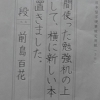 間使った勉強机の上
して、横に新しい本
置きました。
段 前島百花